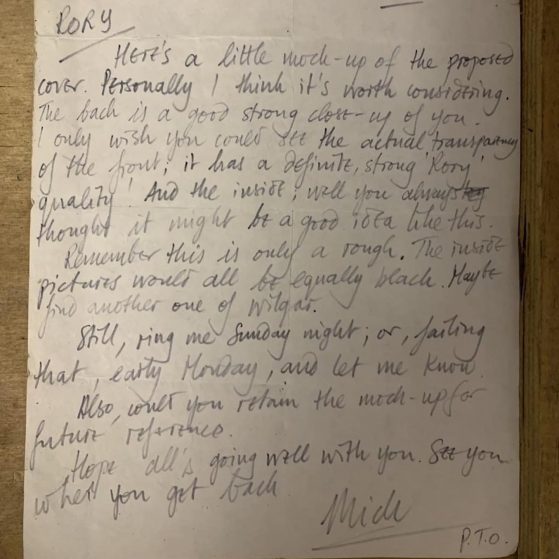 RORY
HERE'S a little mock-up of the proposed
cover. Personally I think it's worth considering.
The back is a good strong close-up of you.
I only wish you could see the actual transparency
of the front; it has a definite, strong 'Rory'
quality! And the inside; well you always
thought it might be a good idea like this.
Remember this is only a rough. The inside
pictures would all be equally black. Maybe
find another one of Wilgar.
Still, ring me Sunday night; or, failing
that, early Monday, and let me know.
Also, could you retain the mock-up for
future reference.
Hope all's going well with you. See you
when you get back
Mick
P.T.O.